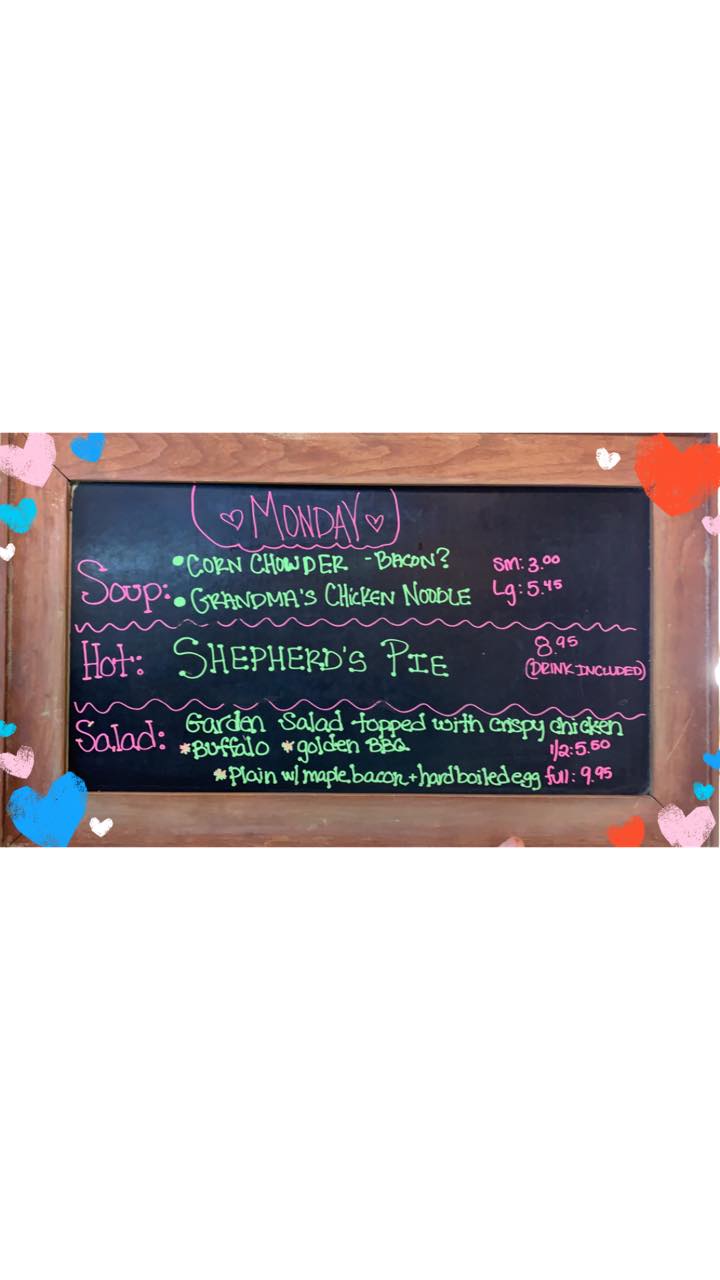 MONDAY
Soup: • CORN CHOWDER - BACON? sm: 3.00
• GRANDMA'S CHICKEN NOODLE Lg: 5.45
Hot: SHEPHERD'S PIE 8.95
(DRINK INCLUDED)
Salad: Garden Salad topped with crispy chicken
*Buffalo *golden BBQ 1/2: 5.50
*Plain w/ maple bacon + hard boiled egg full: 9.95